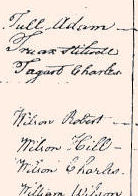 Tull Adam
Truax Stilwell
Tagart Charles
Wilson Robert
Wilson Hill
Wilson Charles
William Wilson